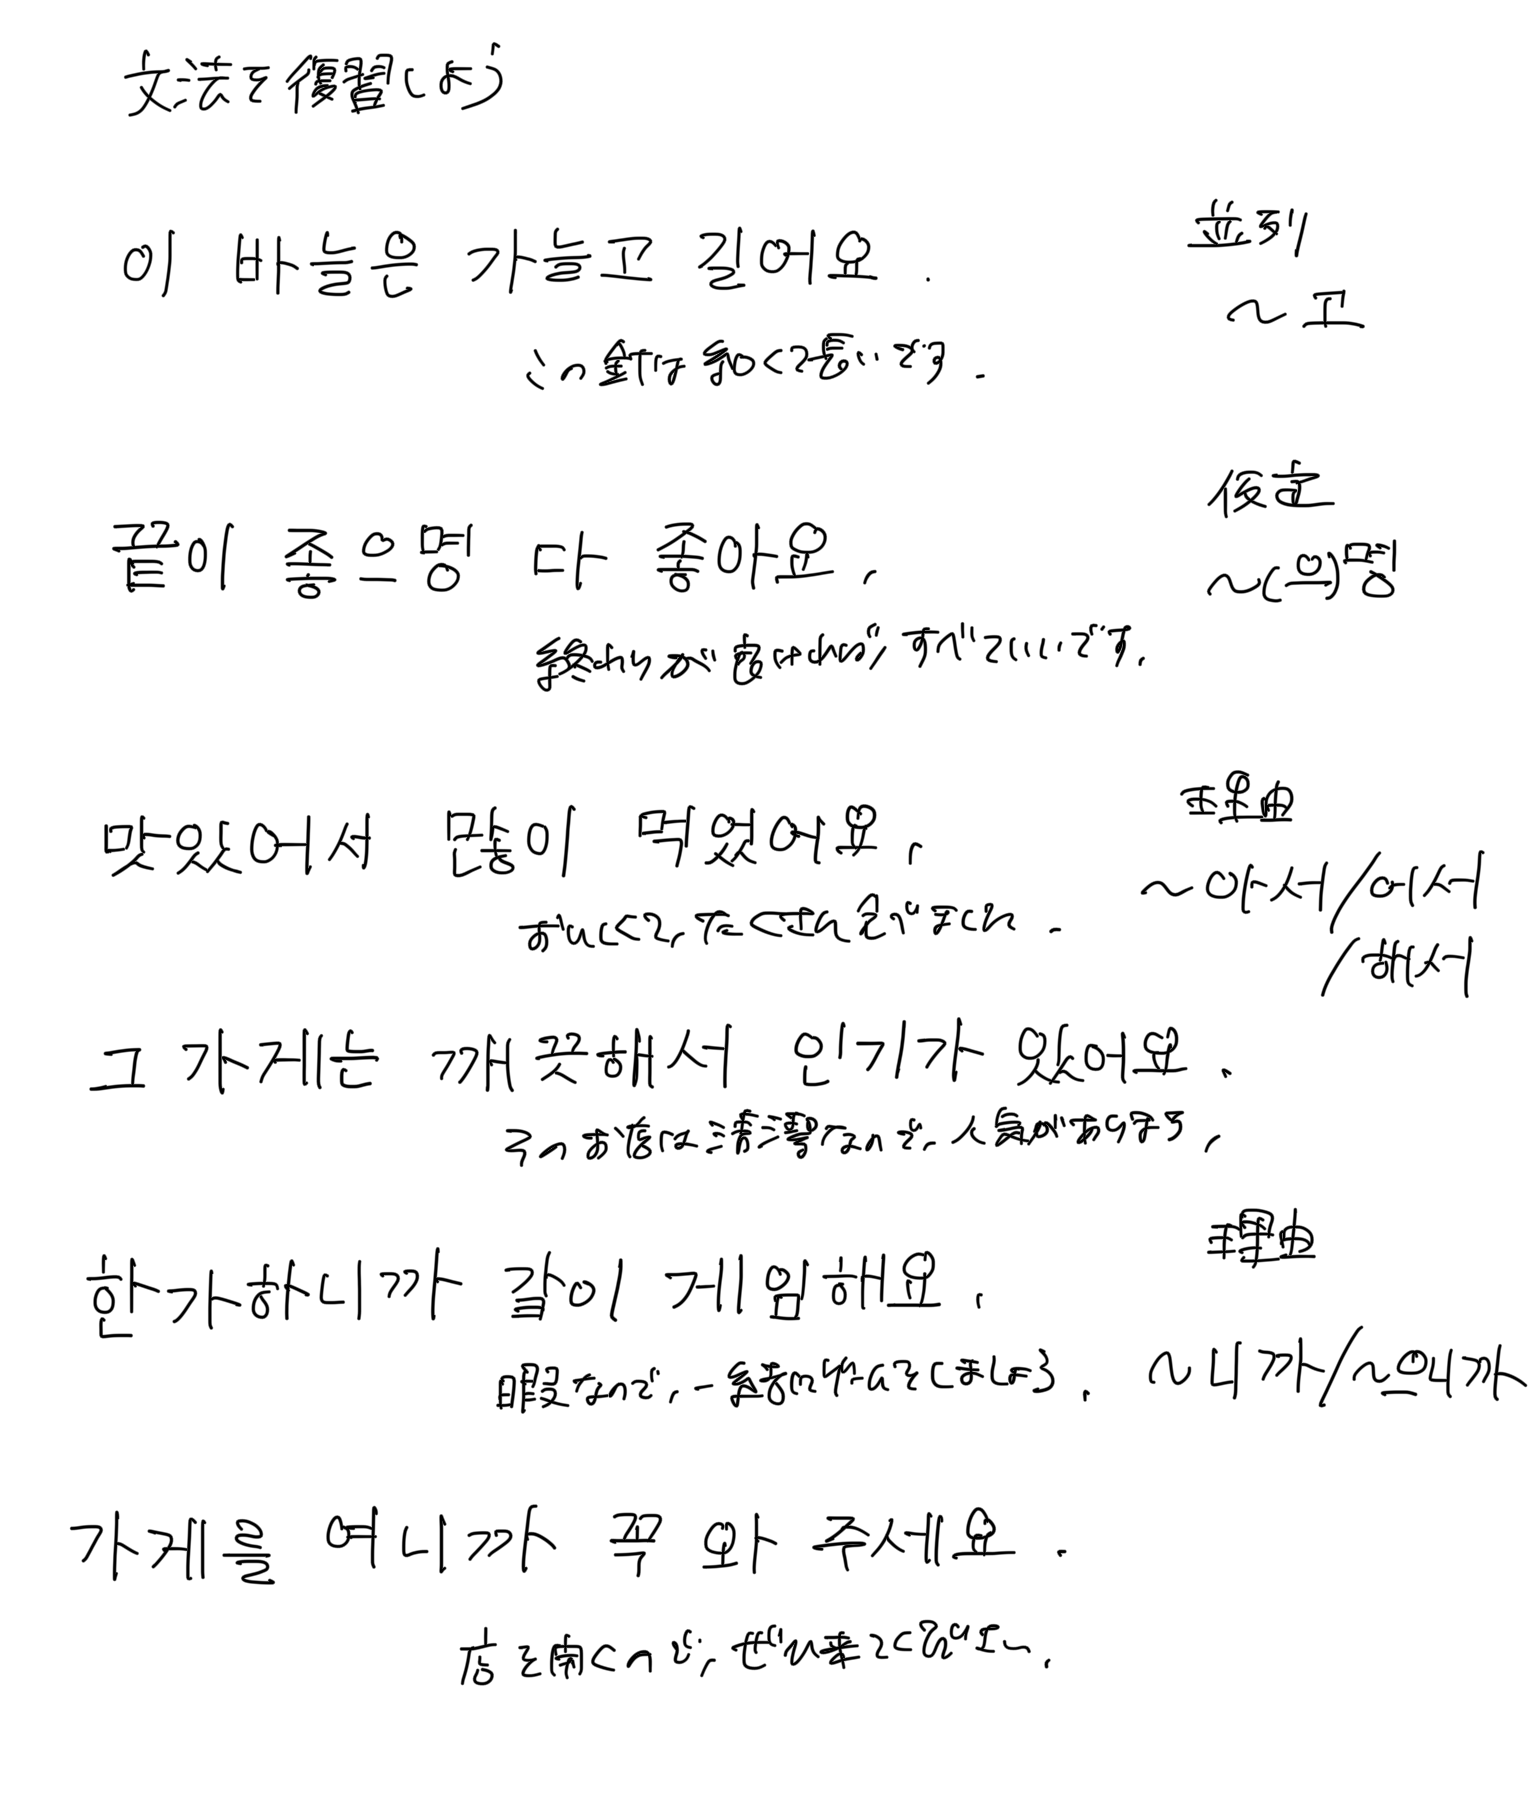 文法を復習しよう
이 바늘은 가늘고 길어요.
並列
~고
この針は細くて長いです.
끝이 좋으명 다 좋아요.
仮定
~(으)명
終わりが良ければ,すべていいです.
맛있어서 많이 먹었어요.
理由
~아서/어서
/해서
おいしくて,たくさん食べました.
그 가게는 깨끗해서 인기가 있어요.
そのお店は清潔なので,人気があります.
한가하니까 같이 게임해요.
理由
~니까/~으니까
暇なので,一緒にゲームをしましょう.
가게를 여니까 꼭 와 주세요.
店を開くので,ぜひ来てください.